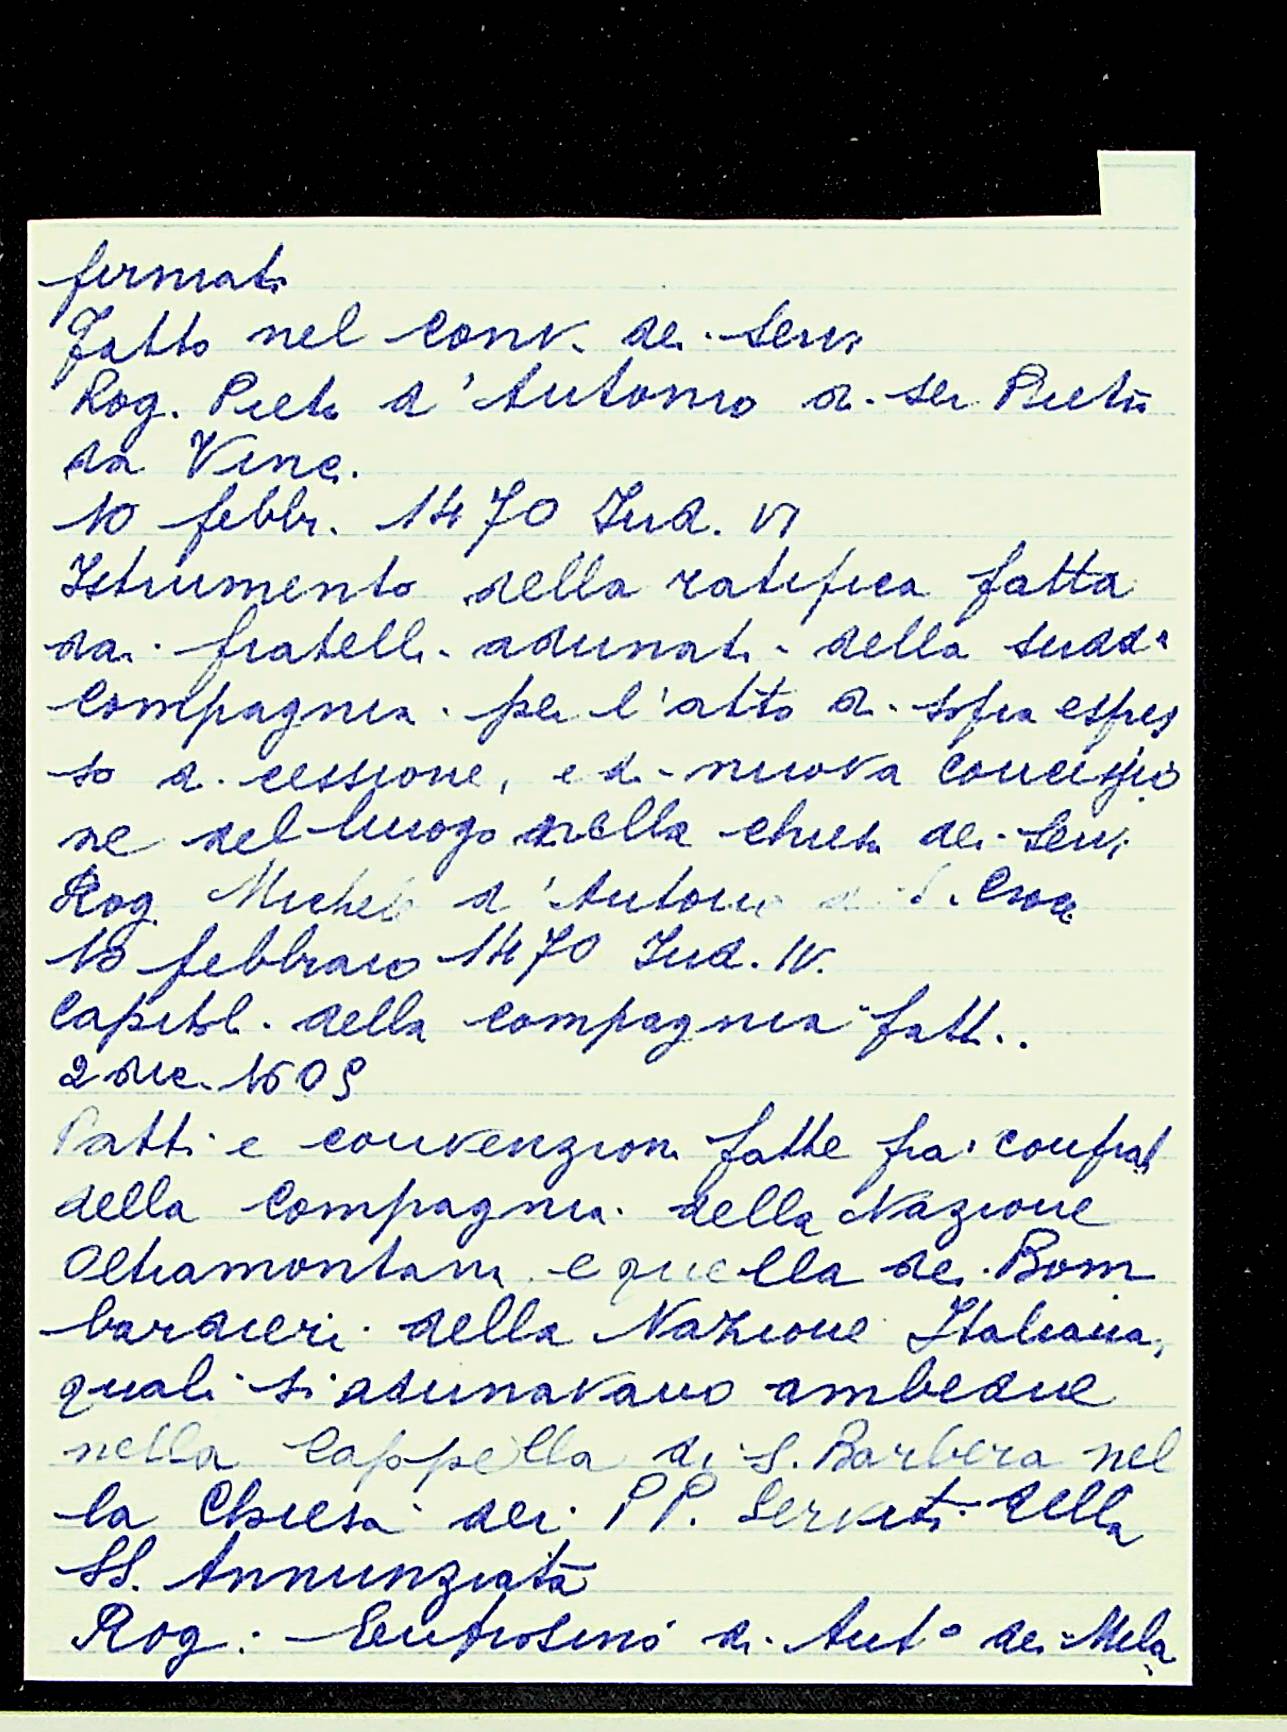 fermati
Fatto nel Conv. dei Servi
Rog. Pietro d'Antonio di ser Pietro
da Vinci.
10 febbr. 1470 Ind. VI
Istrumento della ratifica fatta
dai fratelli adunati della sudda
Compagnia per l'atto di sopra espres
so di cessione, e di nuova concessio
ne del luogo nella chiesa dei Servi
Rog. Michele d'Antonio di S. Croce
10 febbraio 1470 Ind. IV.
Capitoli della compagnia fatti..
2 dic. 1609
Patti e convenzioni fatte fra i confrati
della Compagnia della Nazione
Oltramontani e quella dei Bom
bardieri della Nazione Italiana,
quali si adunavano ambedue
nella Cappella di S. Barbera nel
la Chiesa dei PP. Serviti della
SS. Annunziata
Rog. di Anto dei